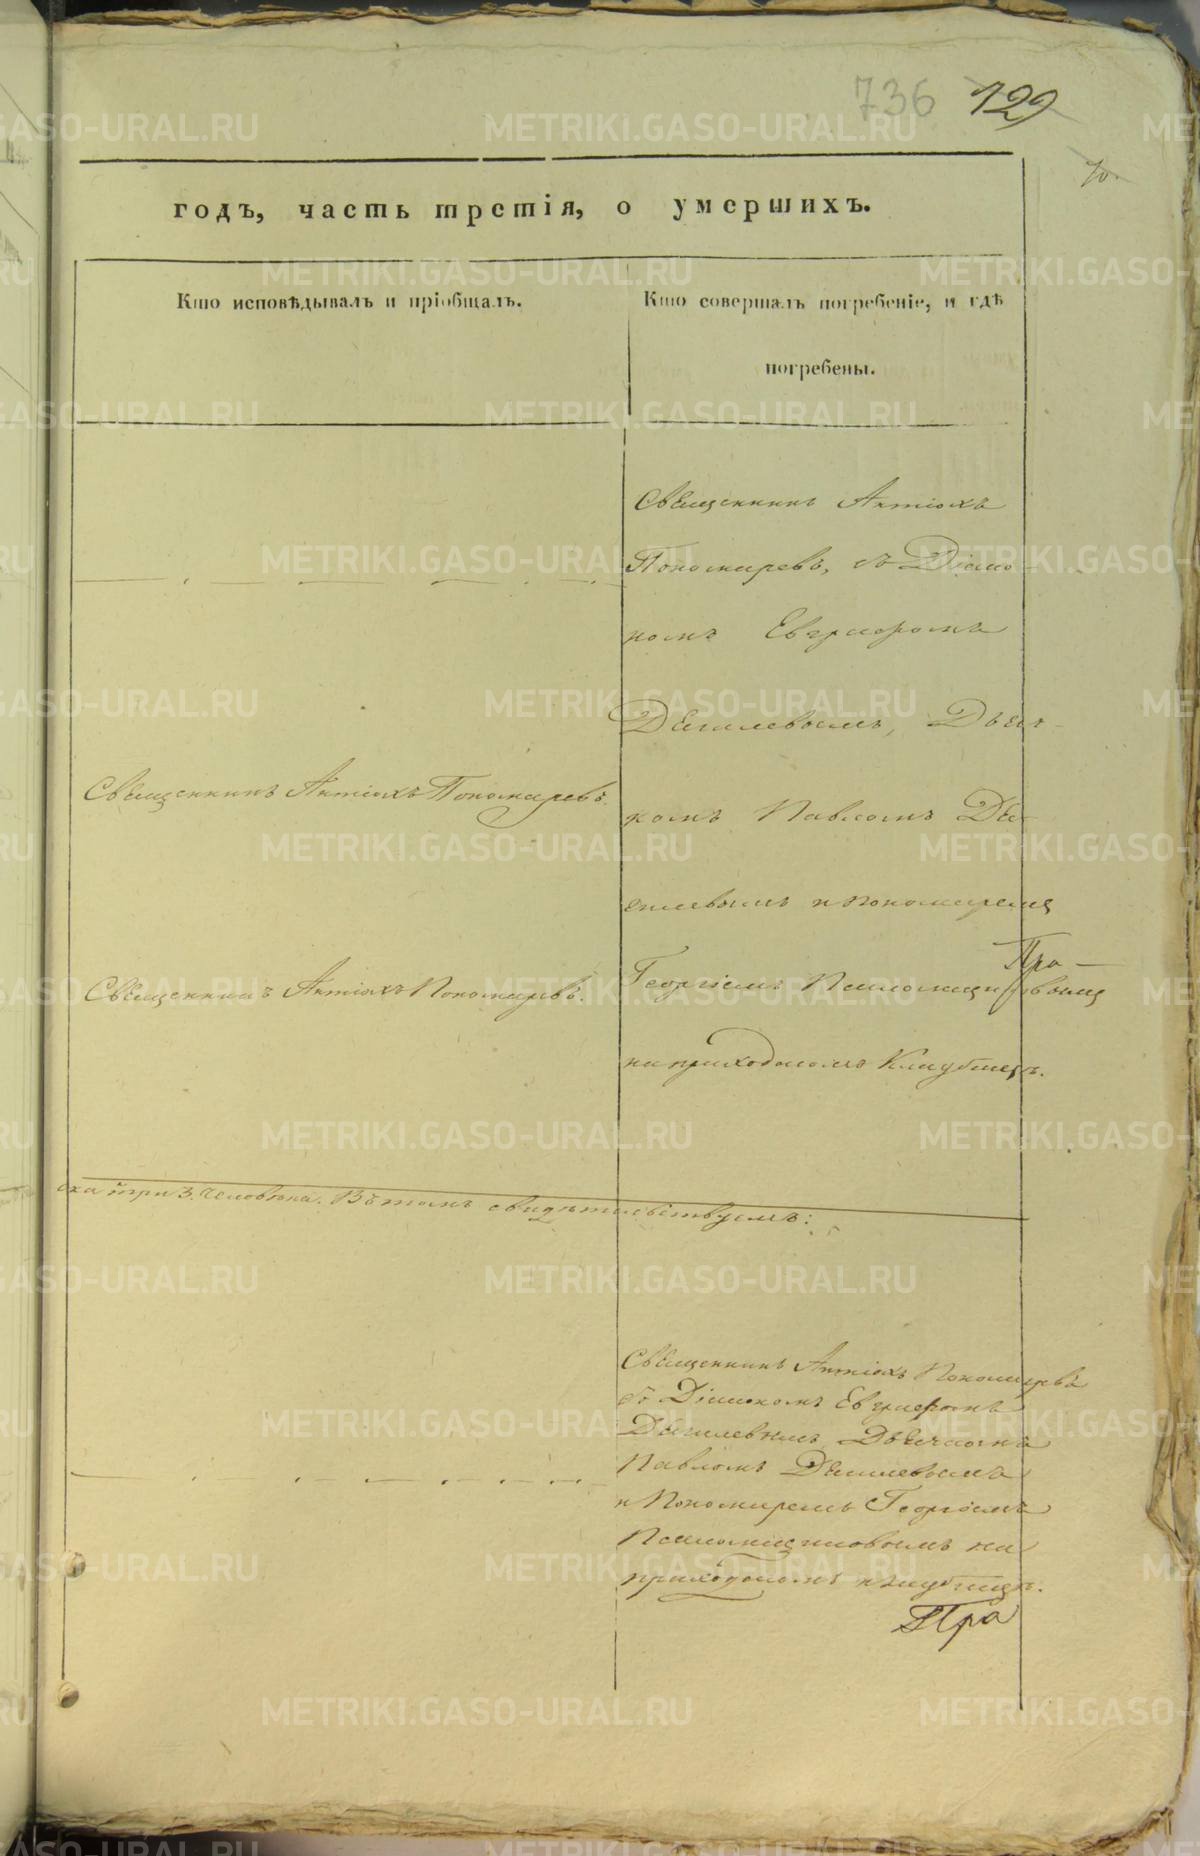 736 129
70.
годъ, часть третія, о умершихъ.
Кто исповѣдывалъ и пріобщалъ.
Кто совершалъ погребеніе, и гдѣ
погребены.
Священникъ Антіохъ
Пономаревъ, съ Діако-
номъ Евграфомъ
Дягилевымъ, Дьяч-
комъ Павломъ Дя-
гилевымъ и Пономаремъ
Георгіемъ
на приходскомъ Кладбищѣ.
Священникъ Антіохъ Пономаревъ.
Священникъ Антіохъ Пономаревъ.
Пра-
ска три 3. человѣка. Въ томъ свидѣтельствуемъ:
Священникъ Антіохъ Пономаревъ
съ Діакономъ Евграфомъ
Дягилевымъ, Дьячкомъ
Павломъ Дягилевымъ
и Пономаремъ Георгіемъ
на
приходскомъ кладбищѣ.
Пра
METRIKI.GASO-URAL.RU